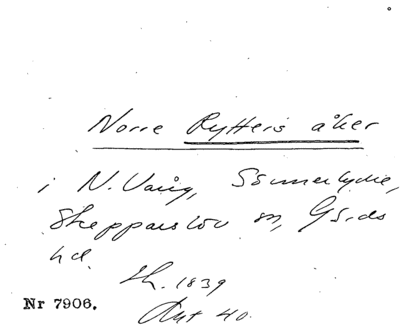 Norre Rytters åker
i N. Vång, Sönnerlycke,
Skepparslöv sn, Gärds
hd.
Sk. 1839
Akt 40.
Nr 7906.